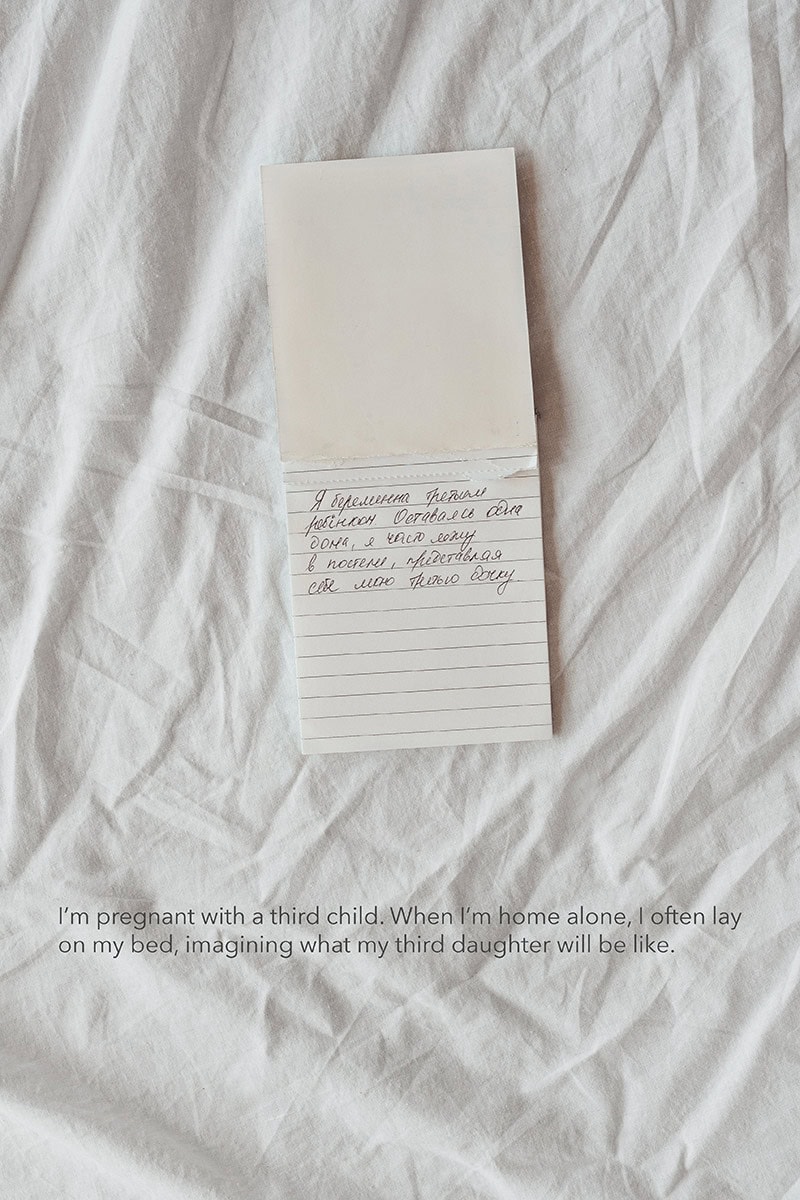 Я беременна третьим
ребёнком Оставаясь одна
дома, я часто лежу
в постели, представляя
себе мою третью дочку.
I’m pregnant with a third child. When I’m home alone, I often lay
on my bed, imagining what my third daughter will be like.